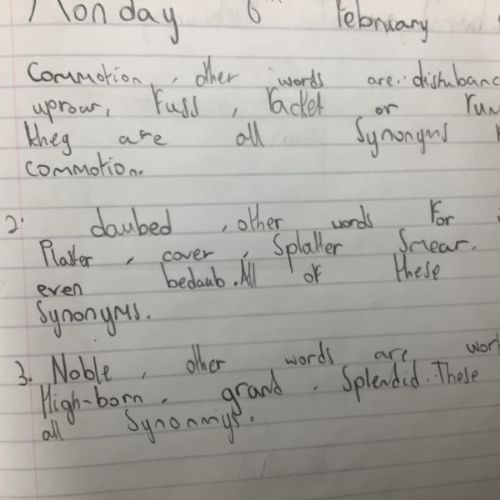 Monday 6 February
Commotion, other words are: disturbanc
uproar, Fuss, racket or run
they are all Synonyms
commotion.
2. daubed, other words For
Plaster, cover, Splatter Smear.
even bedaub. All of these
Synonyms.
3. Noble, other words are wort
High-born, grand, Splendid. These
all Synonmys.